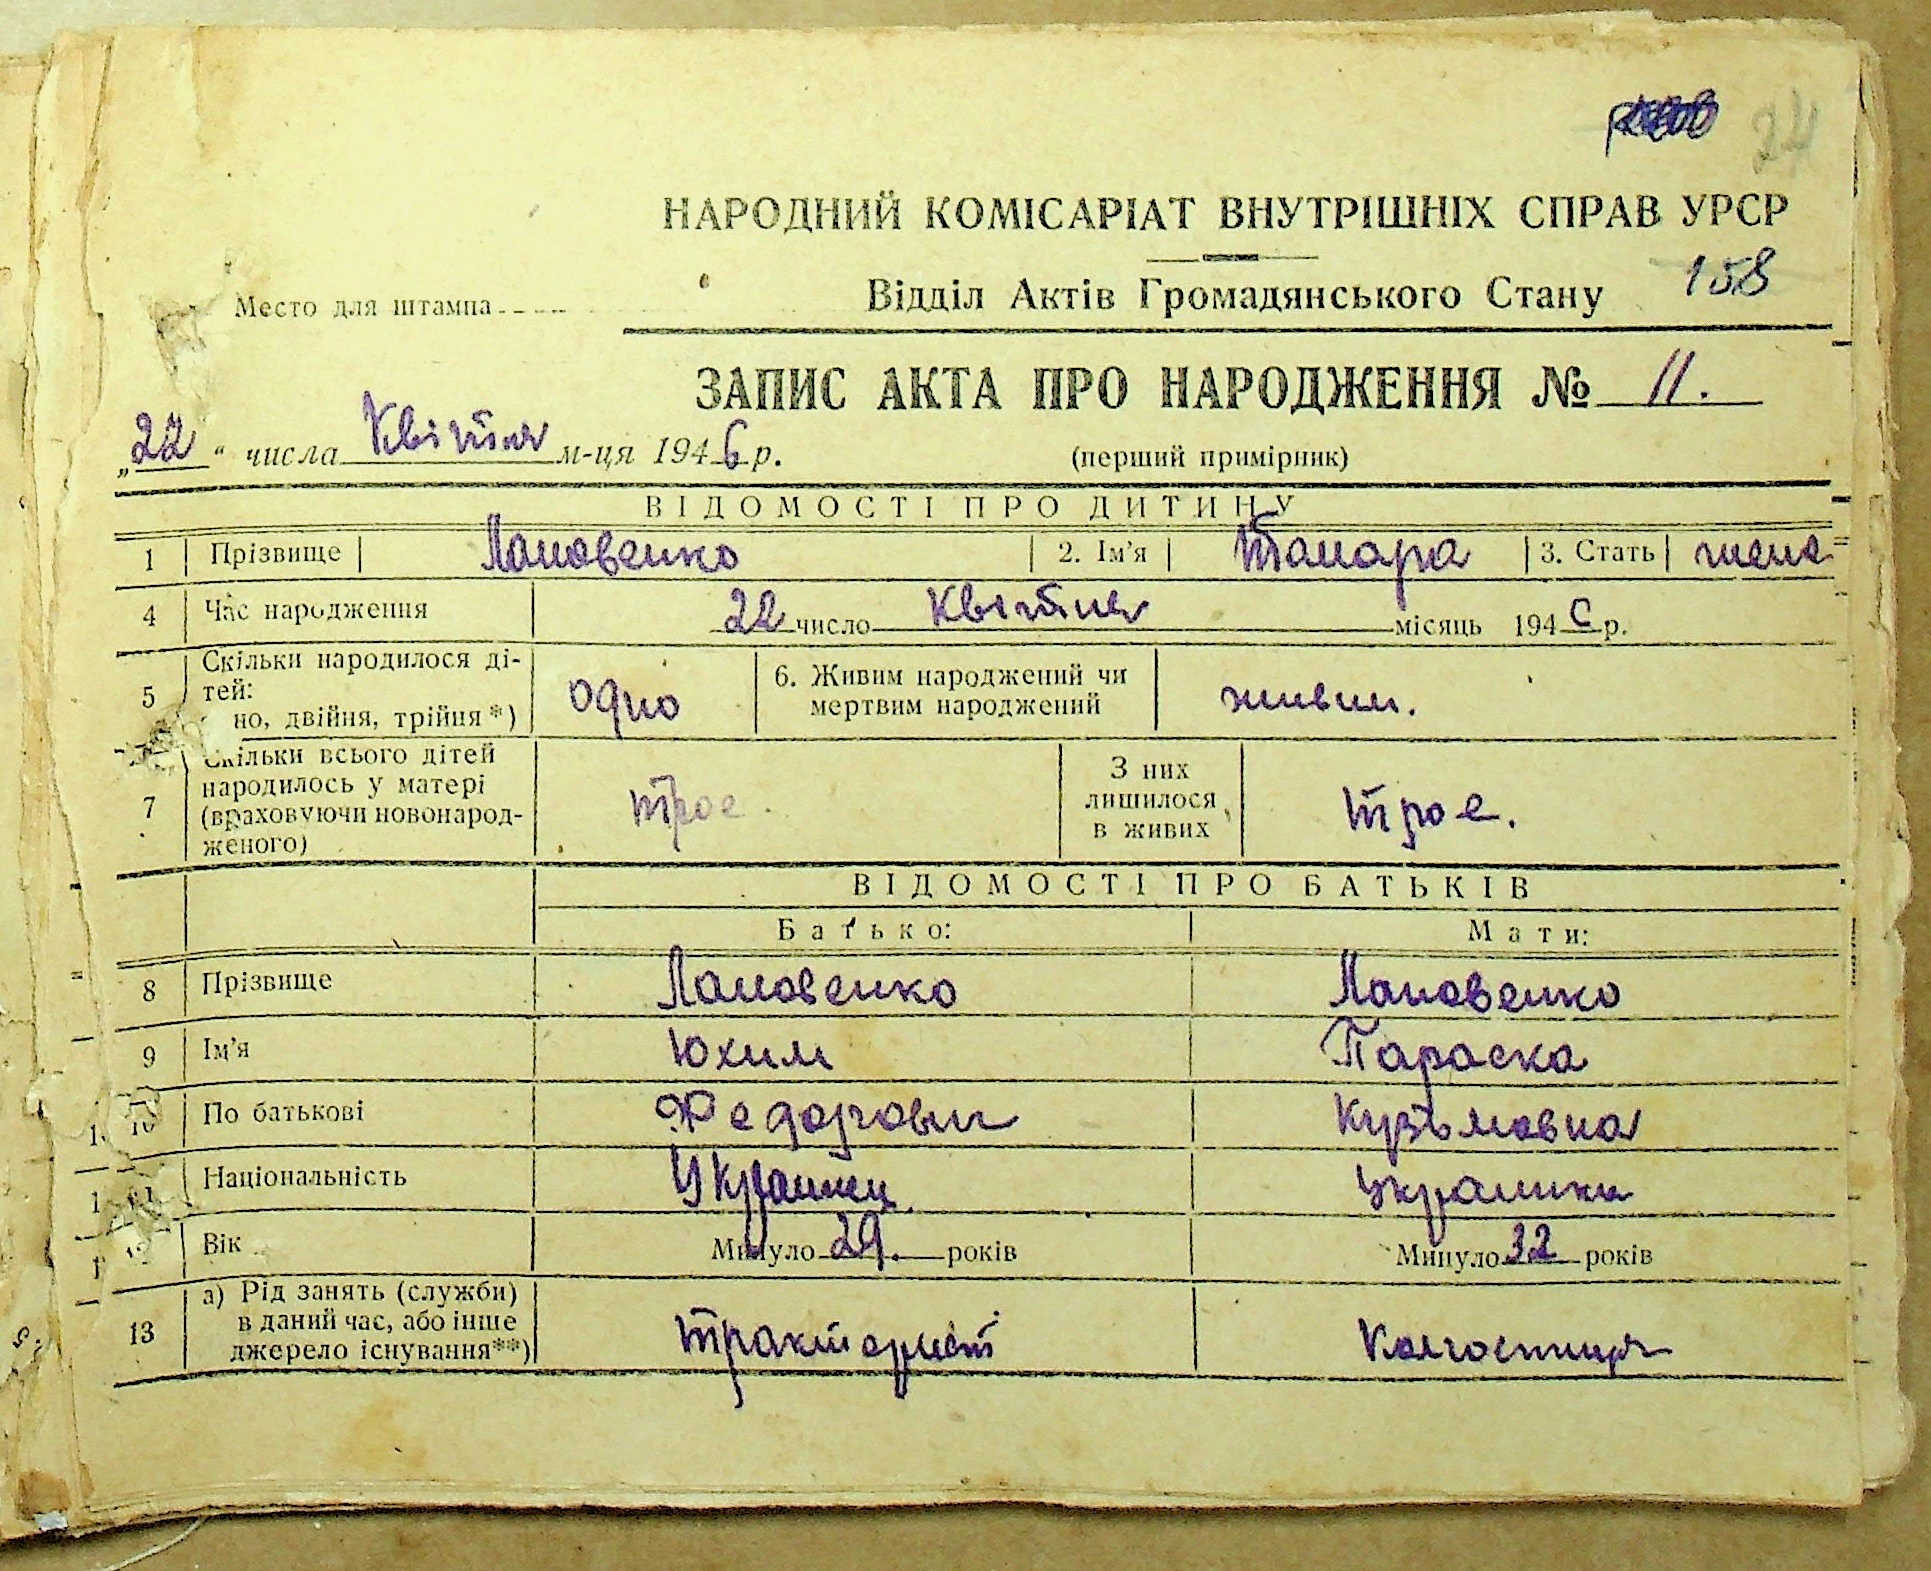 24
НАРОДНИЙ КОМІСАРІАТ ВНУТРІШНІХ СПРАВ УРСР
Место для штампа
Відділ Актів Громадянського Стану 158
ЗАПИС АКТА ПРО НАРОДЖЕННЯ № 11.
„22“ числа Квітня м-ця 1946 р. (перший примірник)
ВІДОМОСТІ ПРО ДИТИНУ
1 Прізвище Лановенко 2. Ім'я Тамара 3. Стать жена
4 Час народження 22 число Квітня місяць 1946 р.
5 Скільки народилося ді-
тей:
но, двійня, трійня*) одно 6. Живим народжений чи
мертвим народжений живим.
7 Скільки всього дітей
народилось у матері
(враховуючи новонарод-
женого) трое. З них
лишилося
в живих трое.
ВІДОМОСТІ ПРО БАТЬКІВ
Батько: Мати:
8 Прізвище Лановенко Лановенко
9 Ім'я Юхим Параска
10 По батькові Федорович Кузьмовна
11 Національність Украинец украинка
12 Вік Минуло 29. років Минуло 32 років
13 а) Рід занять (служби)
в даний час, або інше
джерело існування**) тракторист Колгоспниця